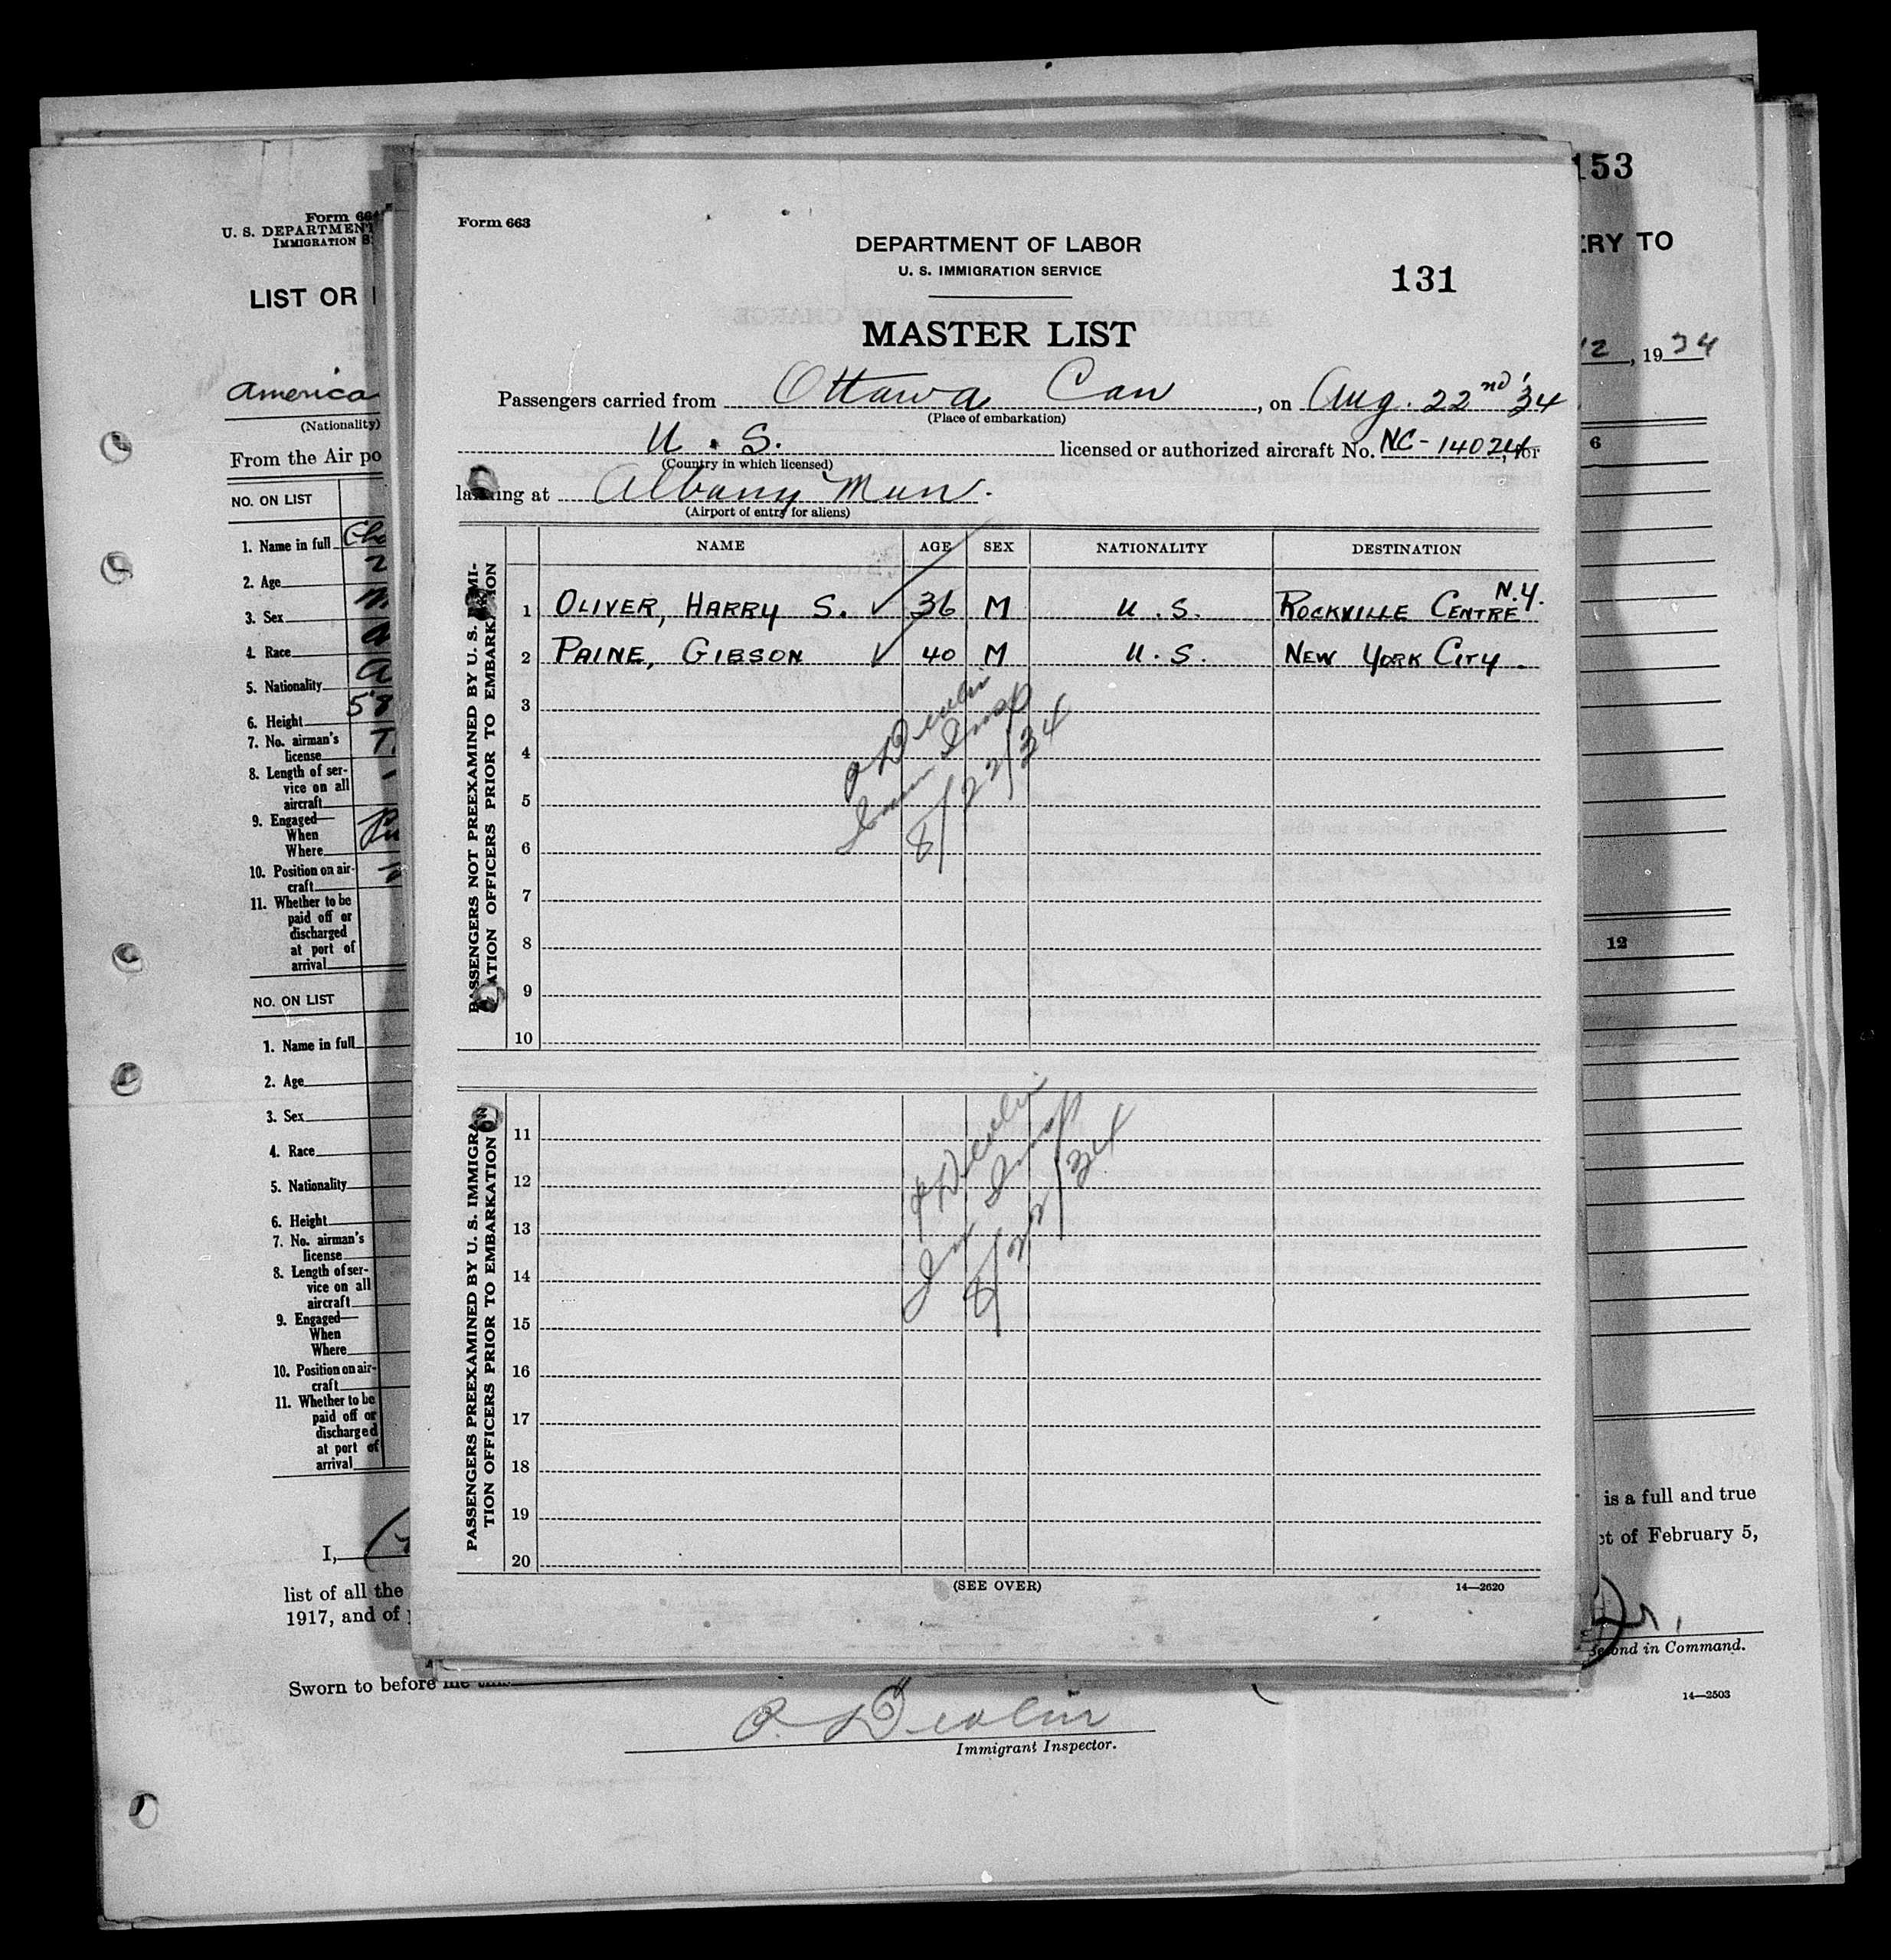 Form 663
DEPARTMENT OF LABOR
U. S. IMMIGRATION SERVICE
131
MASTER LIST
Passengers carried from Ottawa Can, on Aug. 22nd '34
(Place of embarkation)
U. S. licensed or authorized aircraft No. NC-14024, for
(Country in which licensed)
landing at Albany Mun.
(Airport of entry for aliens)
NAME AGE SEX NATIONALITY DESTINATION
PASSENGERS NOT PREEXAMINED BY U. S. IMMI-
GRATION OFFICERS PRIOR TO EMBARKATION
1 OLIVER, HARRY S. ✓ 36 M U. S. ROCKVILLE CENTRE N.Y.
2 PAINE, GIBSON ✓ 40 M U. S. NEW YORK CITY.
3
4
5
6
7
8
9
10
P Devlin
Imm Insp
8/22/34
PASSENGERS PREEXAMINED BY U. S. IMMIGRA-
TION OFFICERS PRIOR TO EMBARKATION
11
12
13
14
15
16
17
18
19
20
P Devlin
Im Insp
8/22/34
(SEE OVER)
14—2620
Form 66
U. S. DEPARTMENT
IMMIGRATION S
LIST OR
America
(Nationality)
From the Air po
NO. ON LIST
1. Name in full
2. Age
3. Sex
4. Race
5. Nationality
6. Height
7. No. airman's
license
8. Length of ser-
vice on all
aircraft
9. Engaged—
When
Where
10. Position on air-
craft
11. Whether to be
paid off or
discharged
at port of
arrival
NO. ON LIST
1. Name in full
2. Age
3. Sex
4. Race
5. Nationality
6. Height
7. No. airman's
license
8. Length of ser-
vice on all
aircraft
9. Engaged—
When
Where
10. Position on air-
craft
11. Whether to be
paid off or
discharged
at port of
arrival
I,
list of all the
1917, and of
Sworn to before me this
P. Devlin
Immigrant Inspector.
153
ERY TO
2, 1934
6
12
is a full and true
ct of February 5,
Second in Command.
14—2503